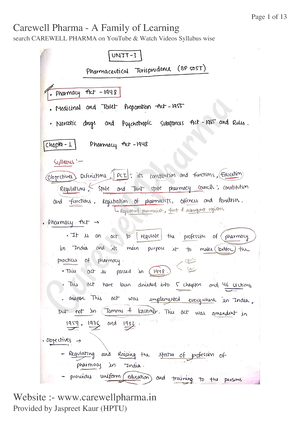 Page 1 of 13
Carewell Pharma - A Family of Learning
search CAREWELL PHARMA on YouTube & Watch Videos Syllabus wise
UNIT-I
Pharmaceutical Jurisprudence (BP 505T)
• Pharmacy Act - 1948
• Medicinal and Toilet Preparation Act - 1955
• Narcotic drugs and Psychotropic Substances Act - 1985 and Rules.
Chapter-1 Pharmacy Act - 1948
Syllabus :-
Objectives, Definitions, PCI : its constitution and functions, Education
Regulations, State and Joint state pharmacy councils, constitution
and functions, Registration of pharmacists, offences and Penalties.
• Pharmacy Act →
• It is an act to regulate the profession of pharmacy
in India and its main purpose is to make better the
practices of pharmacy
• This act is passed in 1948
• This act have been divided into 5 chapter and 46 sections
• This act was implemented everywhere in India
but not in Jammu & Kashmir. This act was amended in
1959, 1976 and
• Objectives →
– Regulating and Raising the status of profession of
pharmacy in India.
– uniform education and training to the persons
Carewell Pharma
Website :- www.carewellpharma.in
Provided by Jaspreet Kaur (HPTU)